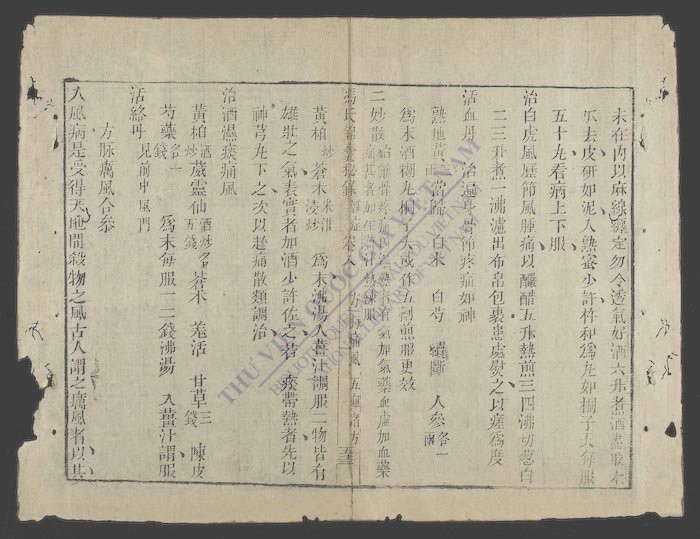 末在內以麻線纏定勿令透氣好酒六升煮酒盡取木
瓜去皮研如泥入熟蜜少許杵和爲丸如桐子大每服
五十丸看病上下服
治白虎風歷節風腫痛以釅醋五升熱煎三四沸切葱白
二三升煮一沸漉出布帛包裹患處熨之以瘥爲度
活血丹 治遍身骨節疼痛如神
熟地黃 當歸 白朮 白芍 續斷 人參各一兩
爲末酒糊丸桐子大或作五劑煎服更效
二妙散 有氣加氣藥血虛加血藥
馮氏錦囊秘錄 雜症 卷八 方脈痛風 五
黃柏炒 蒼朮 米泔浸炒 爲末沸湯入薑汁調服二物皆有
雄壯之氣表實者加酒少許佐之若 痰帶熱者先以
神芎丸下之次以趂痛散類調治
治酒濕痰痛風
黃柏酒炒 葳靈仙酒炒各五錢 蒼朮 羗活 甘草三錢 陳皮
芍藥各一錢 爲末每服一二錢沸湯 入薑汁調服
活絡丹 見前中風門
方脉癘風合參
入風病是受得天地間殺物之風古人謂之癘風者以其
THƯ VIỆN QUỐC GIA VIỆT NAM
BIBLIOTHEQUE NATIONALE DU VIETNAM
NATIONAL LIBRARY OF VIETNAM